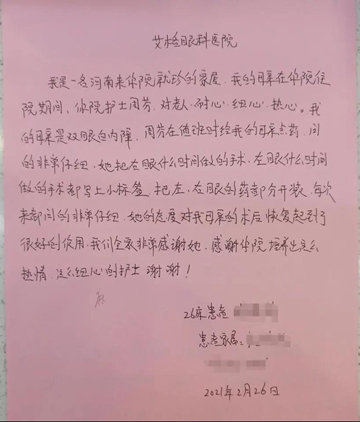 艾格眼科医院
我是一名河南来你院就诊的家属，我的母亲在你院住
院期间，你院护士周芳，对老人耐心、细心、热心。我
的母亲是双眼白内障，周芳在值班时给我的母亲点药，问
的非常仔细，她把右眼什么时间做的手术，左眼什么时间
做的手术都写上小标签，把左、右眼的药都分开装，每次
来都问的非常仔细，她的态度对我母亲的术后恢复起到了
很好的作用，我们全家非常感谢她，感谢你院培养出这么
热情，这么细心的护士谢谢！
26床患者
患者家属：
2021年2月26日